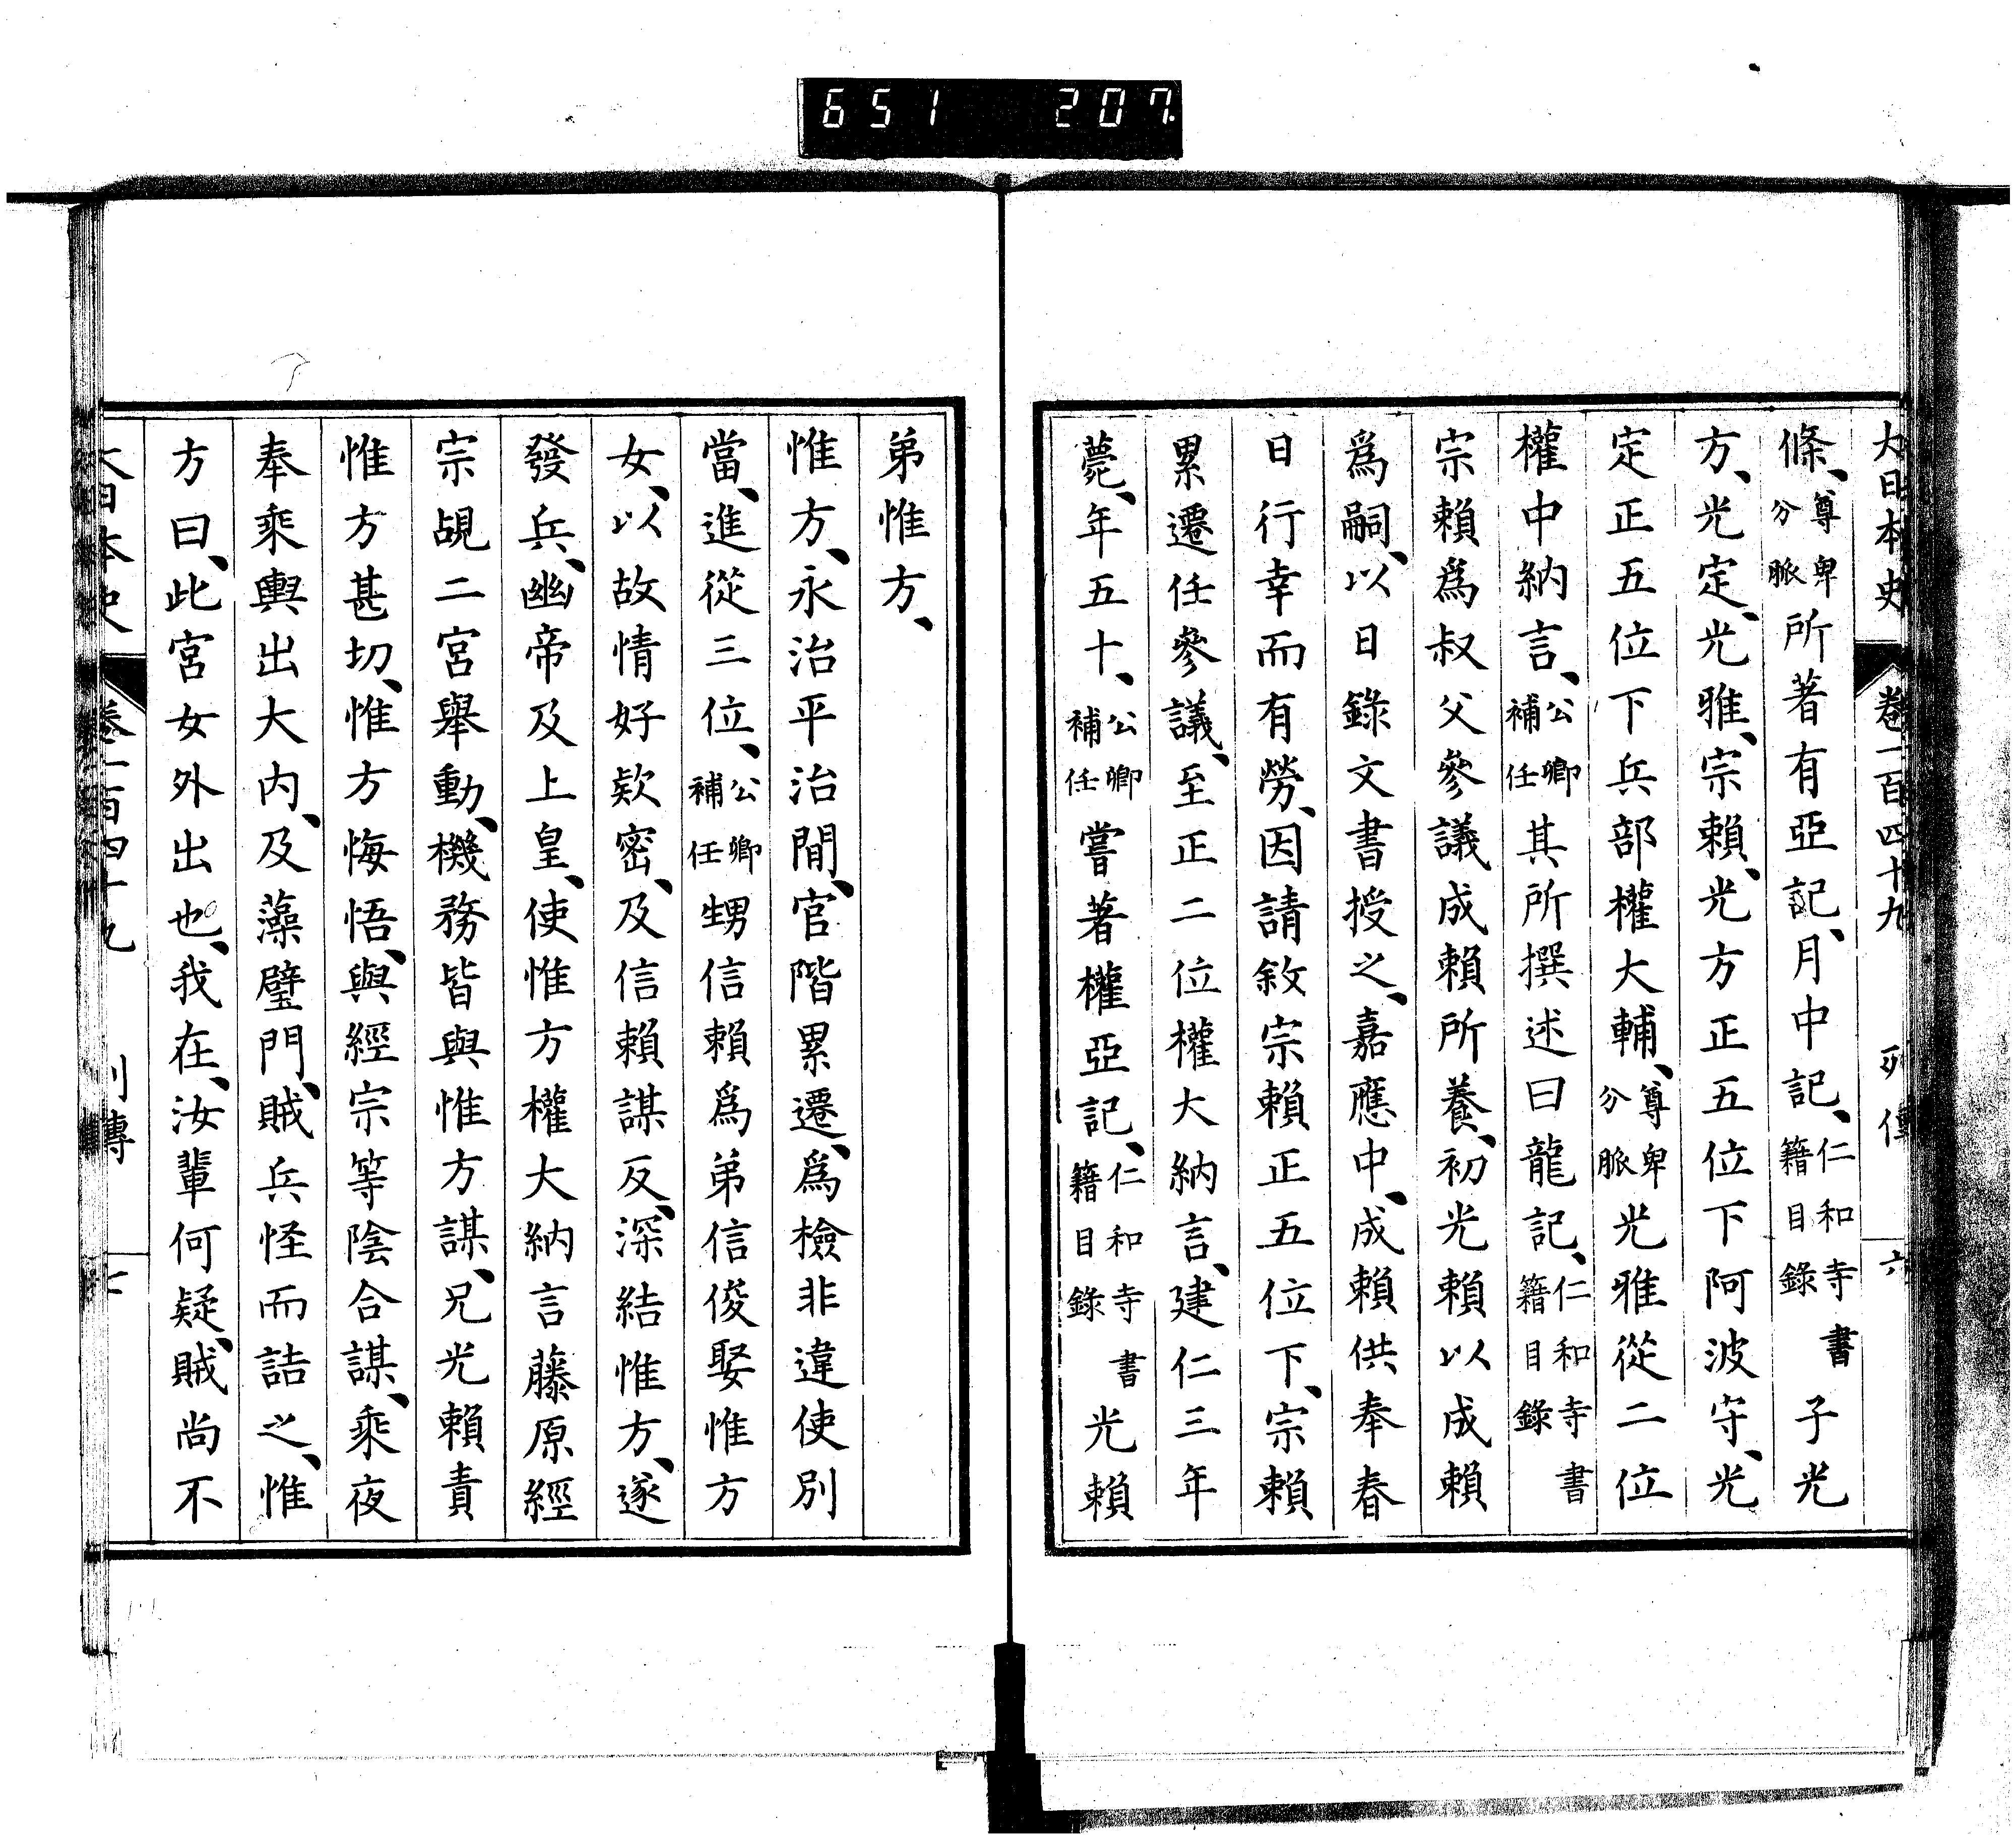 651 207
大日本史 卷一百四十九 列傳 六
條、尊卑分脈所著有亞記、月中記、仁和寺書籍目錄子光
方、光定、光雅、宗賴、光方正五位下阿波守、光
定正五位下兵部權大輔、尊卑分脈光雅從二位
權中納言、公卿補任其所撰述曰龍記、仁和寺書籍目錄
宗賴爲叔父參議成賴所養、初光賴以成賴
爲嗣、以日錄文書授之、嘉應中、成賴供奉春
日行幸而有勞、因請敘宗賴正五位下、宗賴
累遷任參議、至正二位權大納言、建仁三年
薨、年五十、公卿補任嘗著權亞記、仁和寺書籍目錄光賴
弟惟方、
惟方、永治平治間、官階累遷、爲檢非違使別
當、進從三位、公卿補任甥信賴爲弟信俊娶惟方
女、以故情好欵密、及信賴謀反、深結惟方、遂
發兵、幽帝及上皇、使惟方權大納言藤原經
宗覘二宮舉動、機務皆與惟方謀、兄光賴責
惟方甚切、惟方悔悟、與經宗等陰合謀、乘夜
奉乘輿出大內、及藻璧門、賊兵怪而詰之、惟
方曰、此宮女外出也、我在、汝輩何疑、賊尚不
大日本史 卷一百四十九 列傳 七